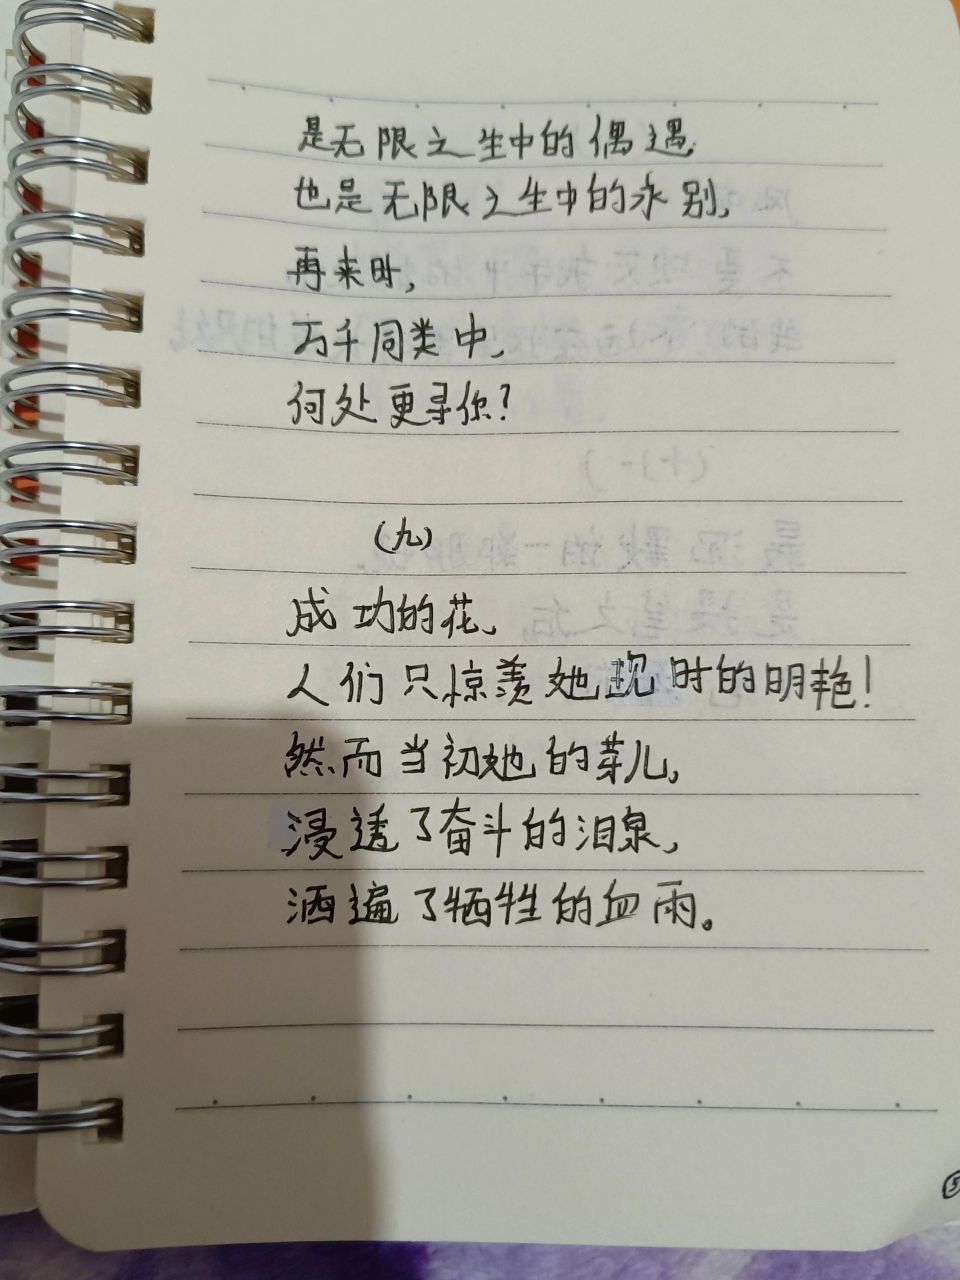 是无限之生中的偶遇,
也是无限之生中的永别,
再来时,
万千同类中,
何处更寻你?
(九)
成功的花、
人们只惊羡她现时的明艳!
然而当初她的芽儿,
浸透了奋斗的泪泉,
洒遍了牺牲的血雨。
⑤